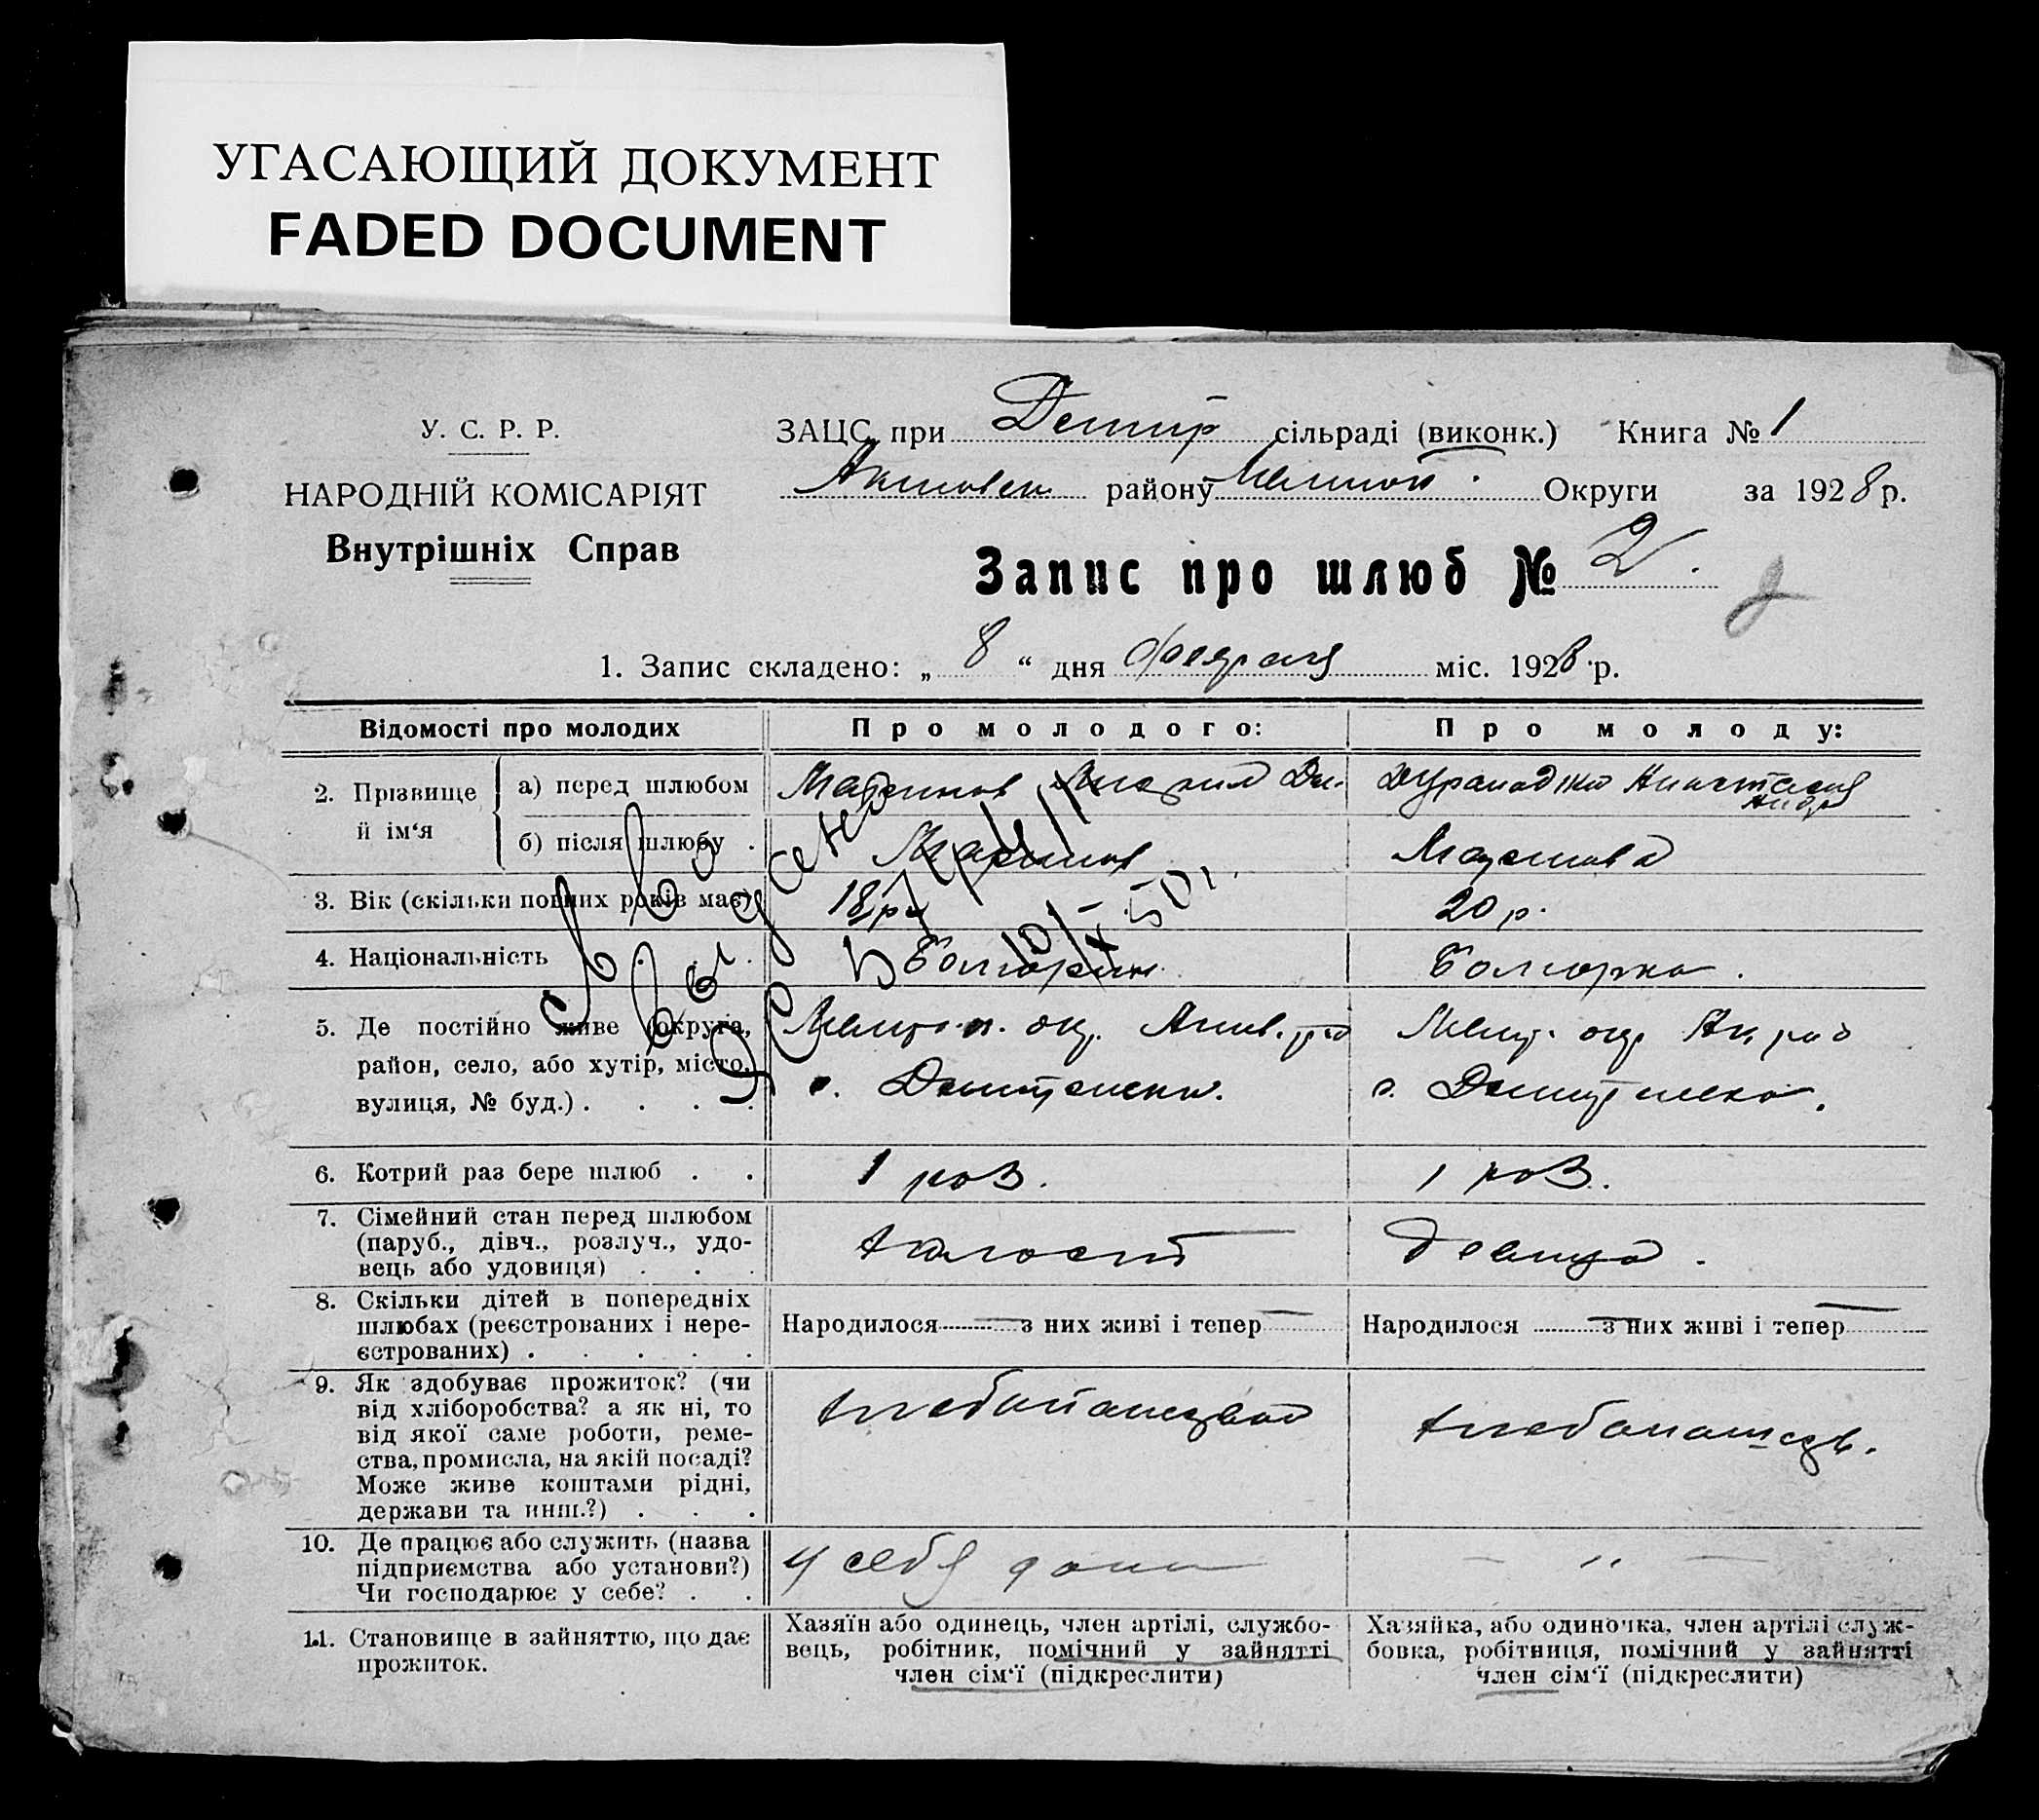 УГАСАЮЩИЙ ДОКУМЕНТ
FADED DOCUMENT
У. С. Р. Р.
НАРОДНІЙ КОМІСАРІЯТ
Внутрішніх Справ
ЗАЦС при Демир сільраді (виконк.) Книга № 1
Акимовск району Мелитоп. Округи за 1928 р.
Запис про шлюб № 2.
1. Запис складено: „ 8 “ дня февраля міс. 1928 р.
Відомості про молодих
Про молодого:
Про молоду:
2. Прізвище й ім‘я
а) перед шлюбом
Михаил
Анастасия
Андр
б) після шлюбу .
3. Вік (скільки повних років має)
18 р.
20 р.
4. Національність . . .
Болгарин.
Болгарка.
5. Де постійно живе (округа,
район, село, або хутір, місто,
вулиця, № буд.) . . . .
Мелит. окр. Аким. р-на
с.
Мелит. окр. Ак. рай
с.
6. Котрий раз бере шлюб . .
1 раз.
1 раз.
7. Сімейний стан перед шлюбом
(паруб., дівч., розлуч., удо-
вець або удовиця) . . .
холост
девица.
8. Скільки дітей в попередніх
шлюбах (реєстрованих і нере-
єстрованих) . . . . .
Народилося — з них живі і тепер —
Народилося — з них живі і тепер —
9. Як здобуває прожиток? (чи
від хліборобства? а як ні, то
від якої саме роботи, реме-
ства, промисла, на якій посаді?
Може живе коштами рідні,
держави та инш.?) . . .
хлебопашеством
хлебопашеств.
10. Де працює або служить (назва
підприємства або установи?)
Чи господарює у себе? . .
у себя дома
— „ —
11. Становище в зайняттю, що дає
прожиток.
Хазяїн або одинець, член артілі, службо-
вець, робітник, помічний у зайнятті
член сім‘ї (підкреслити)
Хазяйка, або одиночка, член артілі служ-
бовка, робітниця, помічний у зайнятті
член сім‘ї (підкреслити)